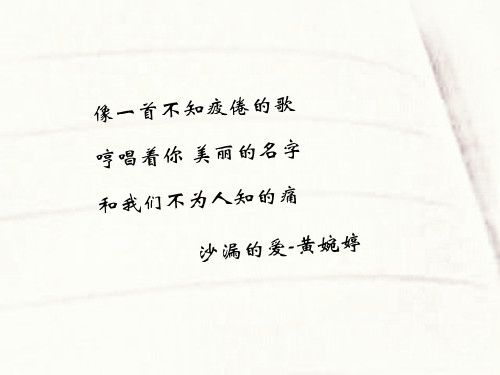 像一首不知疲倦的歌
哼唱着你 美丽的名字
和我们不为人知的痛
沙漏的爱-黄婉婷